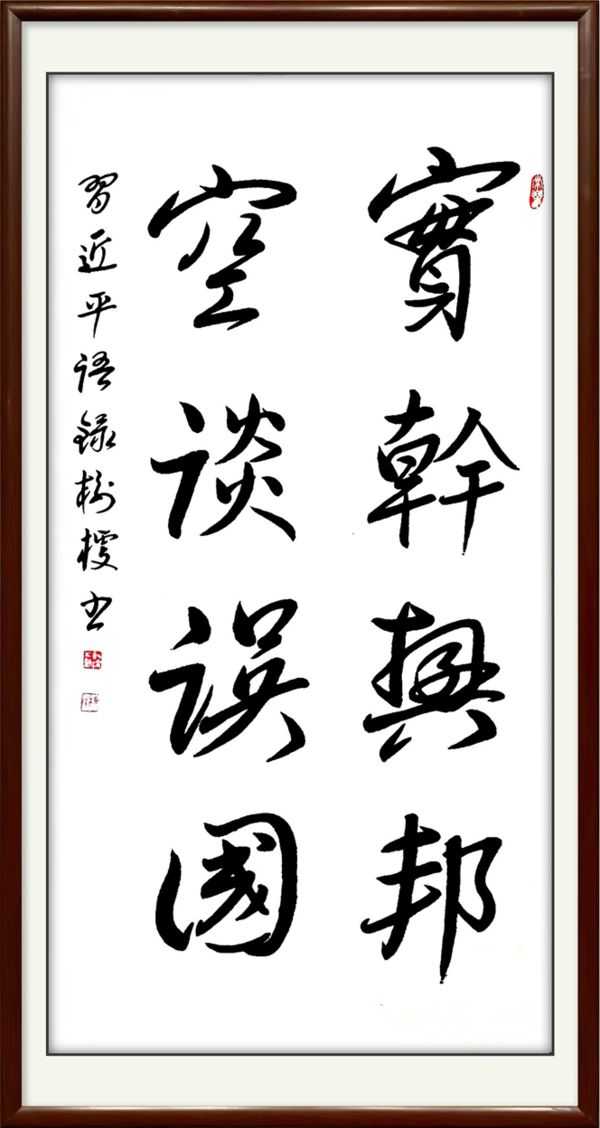 實幹興邦
空談誤國
習近平語録樹樱书